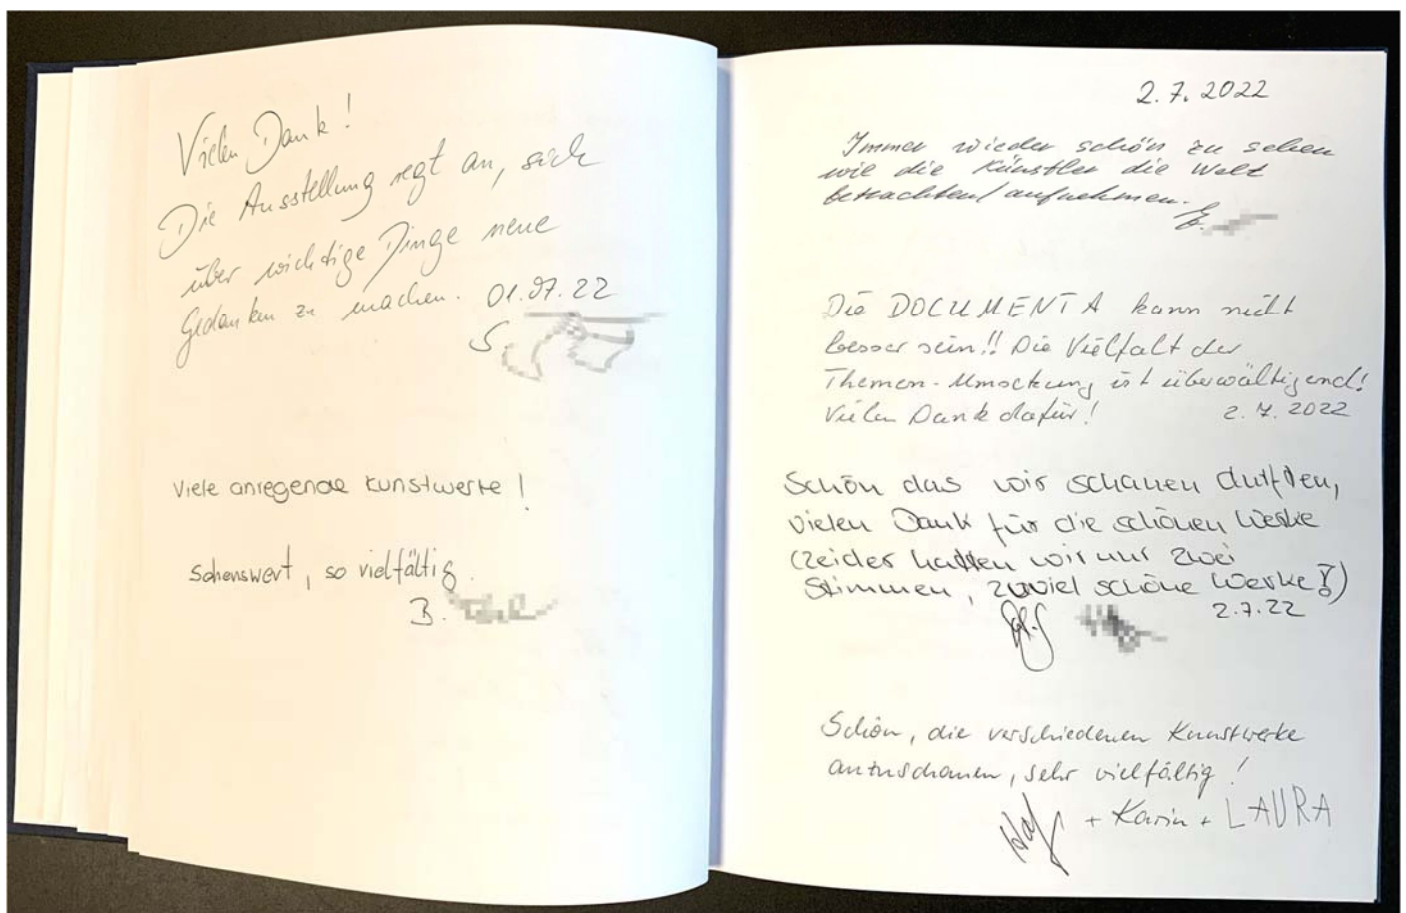 Vielen Dank!
Die Ausstellung regt an, sich
über wichtige Dinge neue
Gedanken zu machen. 01.07.22
S.
Viele anregende Kunstwerke!
Sehenswert, so vielfältig.
B.
2.7.2022
Immer wieder schön zu sehen
wie die Künstler die Welt
betrachten/aufnehmen.
Die DOCUMENTA kann nicht
besser sein!! Die Vielfalt der
Themen-Umsetzung ist überwältigend!
Vielen Dank dafür! 2.7.2022
Schön das wir schauen durften,
vielen Dank für die schönen Werke
(Leider hatten wir nur zwei
Stimmen, zuviel schöne Werke!)
2.7.22
Schön, die verschiedenen Kunstwerke
anzuschauen, sehr vielfältig!
+ Karin + LAURA